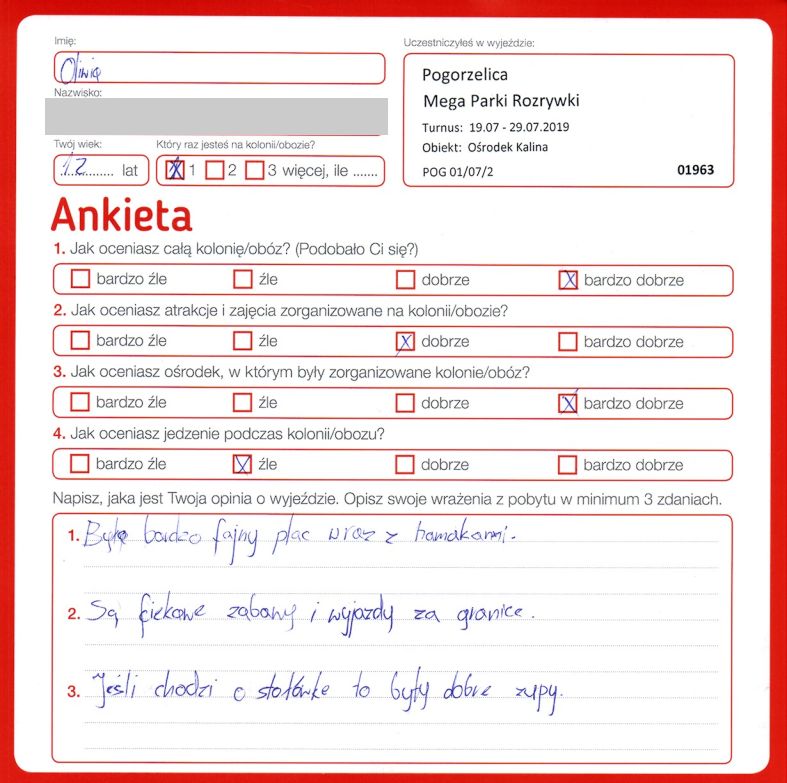 Imię:
Oliwia
Nazwisko:
Twój wiek:
12 lat
Który raz jesteś na kolonii/obozie?
X 1 2 3 więcej, ile .......
Uczestniczyłeś w wyjeździe:
Pogorzelica
Mega Parki Rozrywki
Turnus: 19.07 - 29.07.2019
Obiekt: Ośrodek Kalina
POG 01/07/2 01963
Ankieta
1. Jak oceniasz całą kolonię/obóz? (Podobało Ci się?)
bardzo źle źle dobrze X bardzo dobrze
2. Jak oceniasz atrakcje i zajęcia zorganizowane na kolonii/obozie?
bardzo źle źle X dobrze bardzo dobrze
3. Jak oceniasz ośrodek, w którym były zorganizowane kolonie/obóz?
bardzo źle źle dobrze X bardzo dobrze
4. Jak oceniasz jedzenie podczas kolonii/obozu?
bardzo źle X źle dobrze bardzo dobrze
Napisz, jaka jest Twoja opinia o wyjeździe. Opisz swoje wrażenia z pobytu w minimum 3 zdaniach.
1. Był bardzo fajny plac wraz z hamakami.
2. Są ciekawe zabawy i wyjazdy za granice.
3. Jeśli chodzi o stołówke to były dobre zupy.